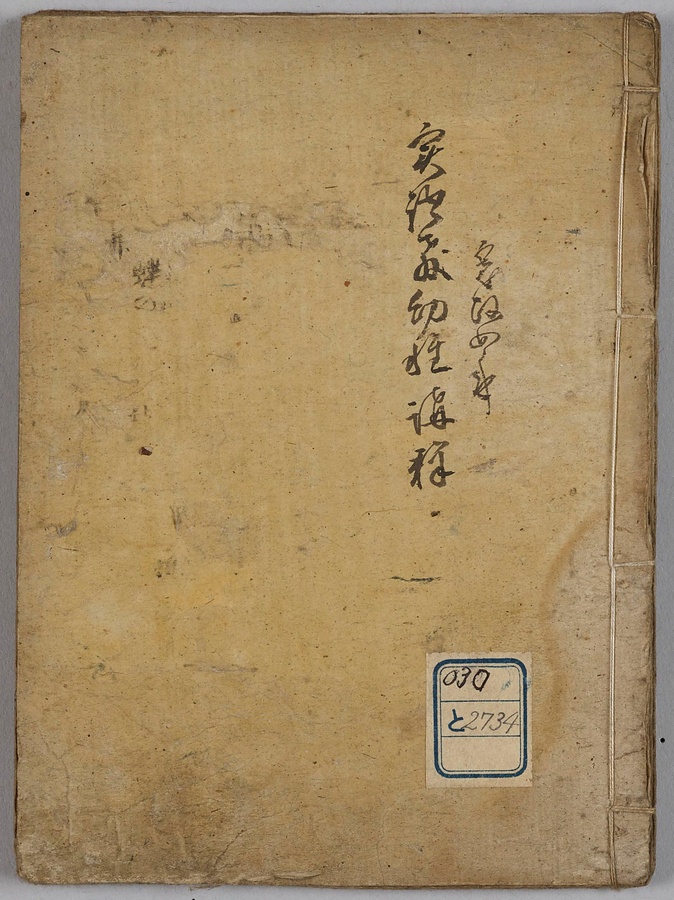 寛政四年
実語教幼稚講釈
030
と2734